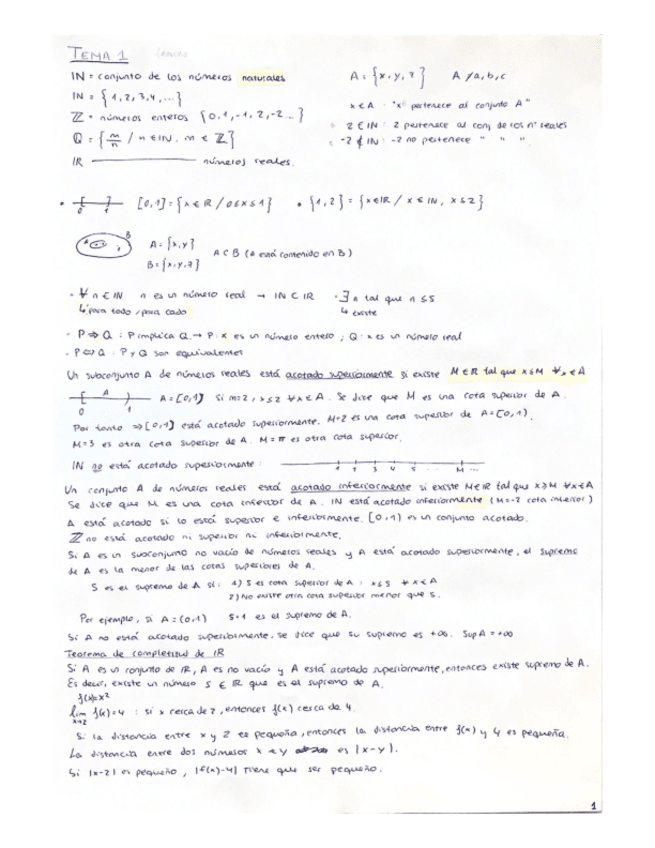 TEMA 1
IN = conjunto de los números naturales
A = {x, y, z} A ≠ a, b, c
IN = {1, 2, 3, 4, ...}
x ∈ A : "x" pertenece al conjunto A"
Z = números enteros {0, 1, -1, 2, -2 ...}
= 2 ∈ IN : 2 pertenece al conj de los nº reales
Q = {m/n / n ∈ IN, m ∈ Z}
= -2 ∉ IN : -2 no pertenece " " "
IR ——— números reales.
• [0,1] = {x ∈ IR / 0 ≤ x ≤ 1} • {1,2} = {x ∈ IR / x ∈ IN, x ≤ 2}
0 1
A B A = {x, y}
B = {x, y, z} A ⊂ B (A está contenido en B)
- ∀ n ∈ IN n es un número real → IN ⊂ IR - ∃ n tal que n ≤ 5
↳ para todo / para cada ↳ existe
- P ⇒ Q : P implica Q → P: x es un número entero ; Q: x es un número real
- P ⇔ Q : P y Q son equivalentes
Un subconjunto A de números reales está acotado superiormente si existe M ∈ IR tal que x ≤ M ∀x ∈ A
A A = [0,1) Si m = 2, x ≤ 2 ∀x ∈ A. Se dice que M es una cota superior de A.
0 1
Por tanto ⇒ [0,1) está acotado superiormente. M=2 es una cota superior de A = [0,1).
M=3 es otra cota superior de A. M = π es otra cota superior.
IN no está acotado superiormente : 1 2 3 4 5 ... M ...
Un conjunto A de números reales está acotado inferiormente si existe M ∈ IR tal que x ≥ M ∀x ∈ A
Se dice que M es una cota inferior de A. IN está acotado inferiormente (M=-2 cota inferior)
A está acotado si lo está superior e inferiormente. [0,1) es un conjunto acotado.
Z no está acotado ni superior ni inferiormente.
Si A es un subconjunto no vacío de números reales y A está acotado superiormente, el supremo
de A es la menor de las cotas superiores de A.
S es el supremo de A si: 1) S es cota superior de A : x ≤ S ∀ x ∈ A
2) No existe otra cota superior menor que S.
Por ejemplo, si A = (0,1) S=1 es el supremo de A.
Si A no está acotado superiormente, se dice que su supremo es +∞. Sup A = +∞
Teorema de completitud de IR
Si A es un conjunto de IR, A es no vacío y A está acotado superiormente, entonces existe supremo de A.
Es decir, existe un número S ∈ IR que es el supremo de A.
f(x) = x²
lim f(x) = 4 : si x cerca de 2, entonces f(x) cerca de 4.
x→2
Si la distancia entre x y 2 es pequeña, entonces la distancia entre f(x) y 4 es pequeña.
La distancia entre dos números x e y es |x-y|.
Si |x-2| es pequeño, |f(x)-4| tiene que ser pequeño.
1